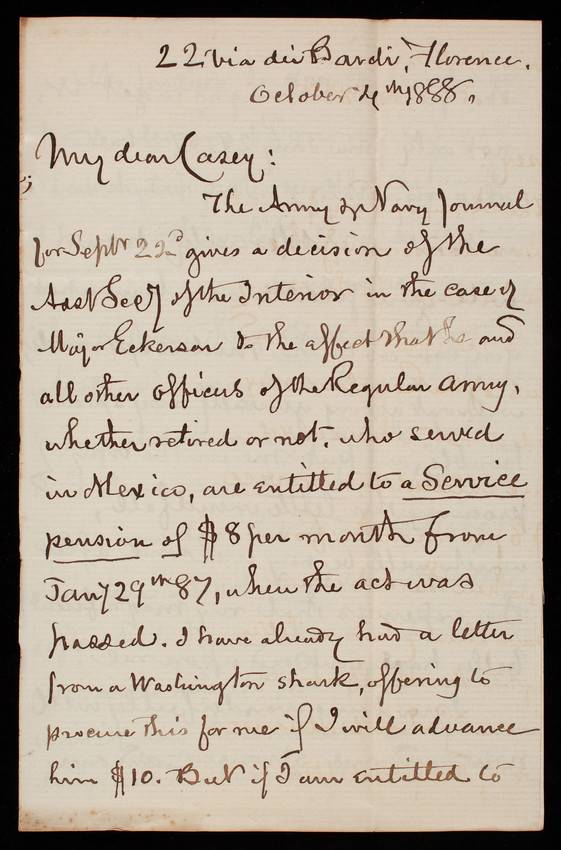 22 via dei Bardi, Florence.
October 4th, 1888.
My dear Casey:
The Army & Navy Journal
for Septr 22d gives a decision of the
Asst Secy of the Interior in the case of
Major Eckerson to the affect that he and
all other officers of the Regular Army,
whether retired or not, who served
in Mexico, are entitled to a Service
pension of $8 per month from
Jany 29th 87, when the act was
passed. I have already had a letter
from a Washington shark, offering to
procure this for me if I will advance
him $10. But if I am entitled to